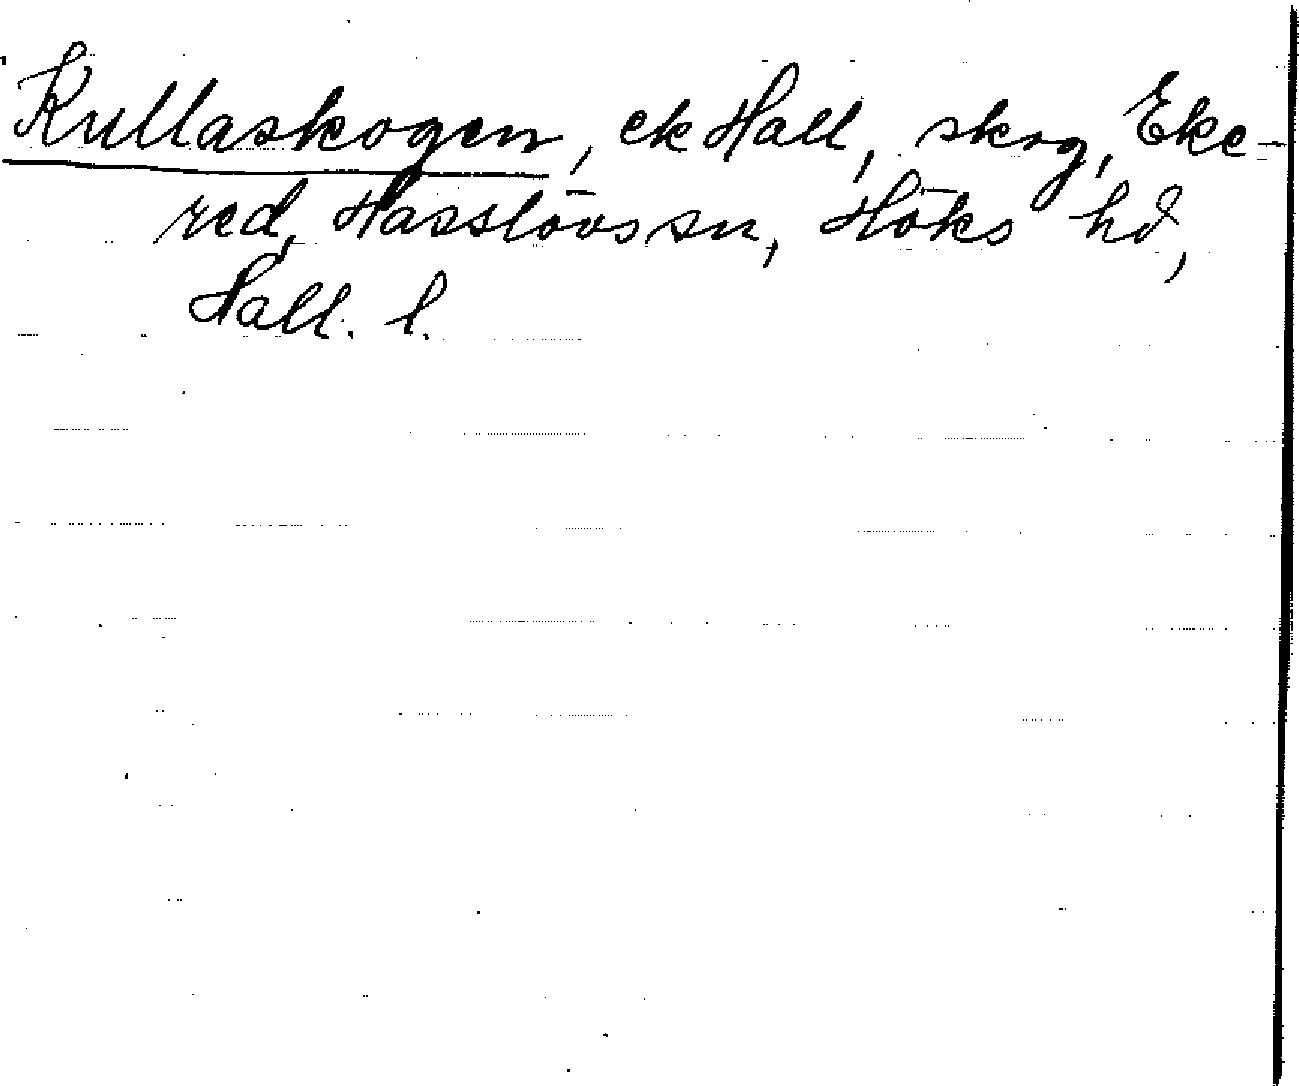 Kullaskogen, ek Hall, skog, Eke-
red, Hasslövs sn, Höks hd,
Hall. l.